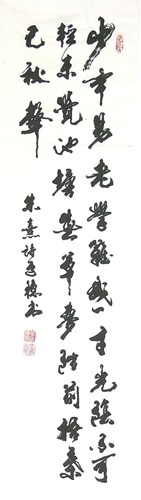 少年易老學難成一寸光陰不可
輕未覺池塘春草夢階前梧葉
已秋聲
朱熹詩